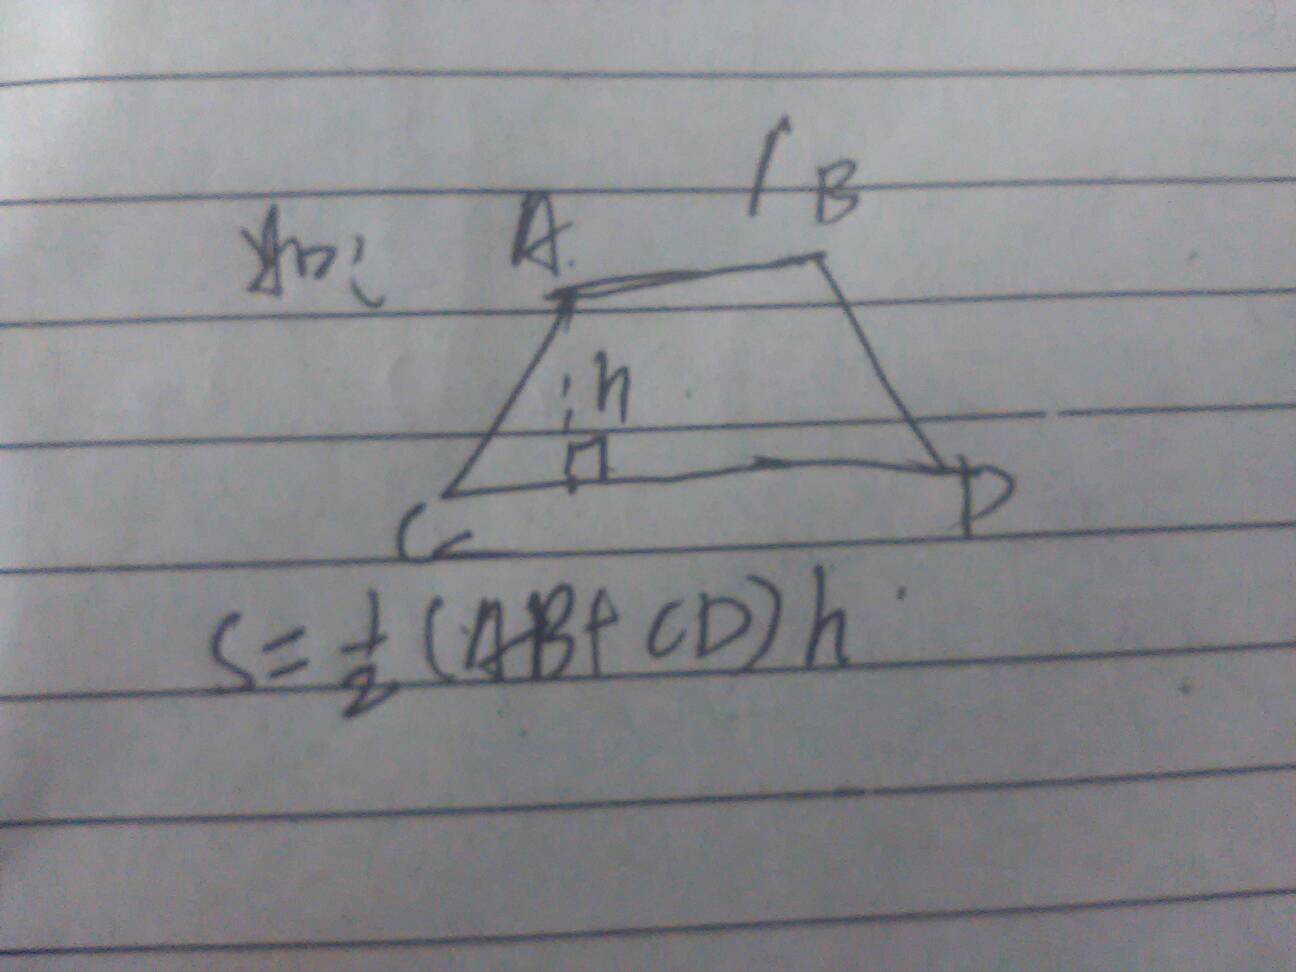 如:
A
B
h
C
D
S=½(AB+CD)h